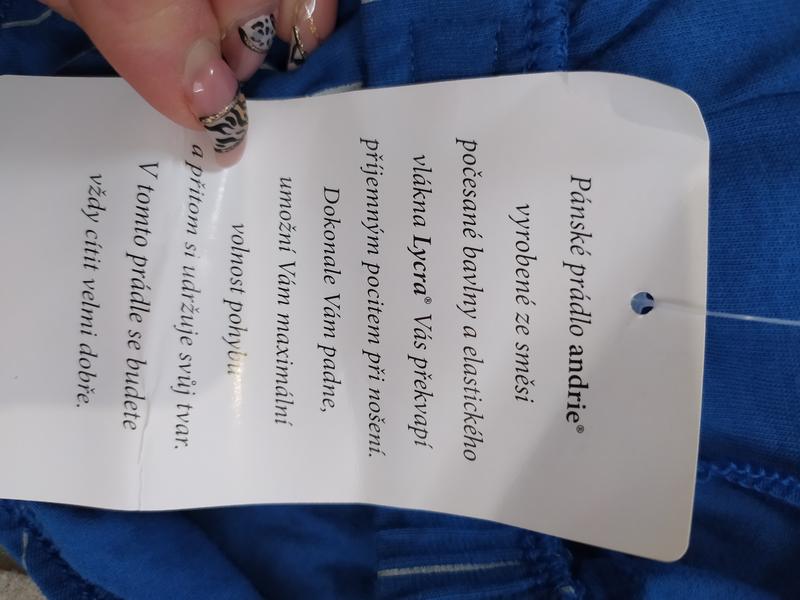 Pánské prádlo andrie®
vyrobené ze směsi
počesané bavlny a elastického
vlákna Lycra® Vás překvapí
příjemným pocitem při nošení.
Dokonale Vám padne,
umožní Vám maximální
volnost pohybu
a přitom si udržuje svůj tvar.
V tomto prádle se budete
vždy cítit velmi dobře.